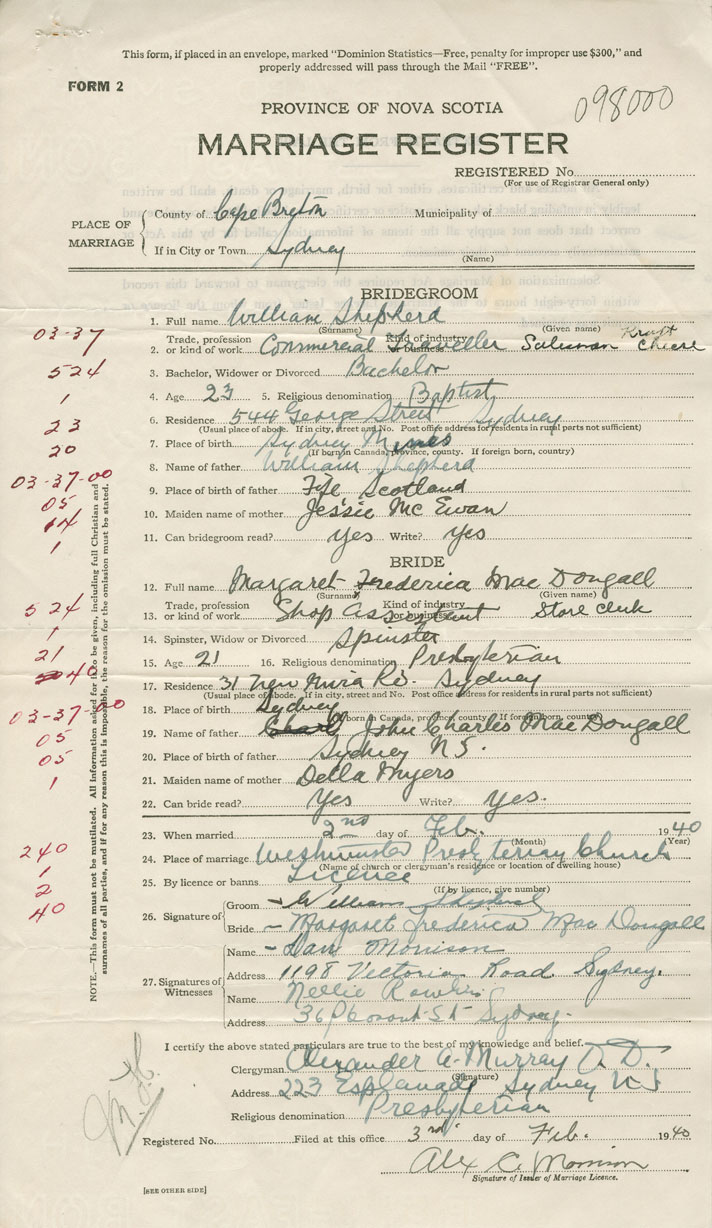 This form, if placed in an envelope, marked "Dominion Statistics—Free, penalty for improper use $300," and
properly addressed will pass through the Mail "FREE".
FORM 2
098000
PROVINCE OF NOVA SCOTIA
MARRIAGE REGISTER
REGISTERED No.
(For use of Registrar General only)
PLACE OF MARRIAGE
County of Cape Breton Municipality of
If in City or Town Sydney
(Name)
BRIDEGROOM
1. Full name William Shepherd
(Surname) (Given name)
03-37
2. Trade, profession or kind of work Commercial Traveller Kind of industry or business Salesman Kraft Cheese
524
3. Bachelor, Widower or Divorced Bachelor
1
4. Age 23 5. Religious denomination Baptist
23
6. Residence 544 George Street Sydney
(Usual place of abode. If in city, street and No. Post office address for residents in rural parts not sufficient)
20
7. Place of birth Sydney Mines
(If born in Canada, province, county. If foreign born, country)
8. Name of father William Shepherd
03-37-00
9. Place of birth of father Fife Scotland
05
10. Maiden name of mother Jessie Mc Ewan
14
11. Can bridegroom read? Yes Write? Yes
1
BRIDE
12. Full name Margaret Frederica Mac Dougall
(Surname) (Given name)
524
13. Trade, profession or kind of work Shop Assistant Kind of industry or business Store Clerk
1
14. Spinster, Widow or Divorced Spinster
21
15. Age 21 16. Religious denomination Presbyterian
40
17. Residence 31 New Mira Rd. Sydney
(Usual place of abode. If in city, street and No. Post office address for residents in rural parts not sufficient)
03-37-00
18. Place of birth Sydney
(If born in Canada, province, county. If foreign born, country)
05
19. Name of father John Charles Mac Dougall
05
20. Place of birth of father Sydney N S.
1
21. Maiden name of mother Della Myers
22. Can bride read? Yes Write? Yes.
23. When married 2nd day of Feb. 1940
(Month) (Year)
240
24. Place of marriage Westminster Presbyterian Church
(Name of church or clergyman's residence or location of dwelling house)
1
25. By licence or banns Licence
(If by licence, give number)
2
40
26. Signature of
Groom – William Shepherd
Bride – Margaret Frederica Mac Dougall
27. Signatures of Witnesses
Name – Dan Morrison
Address 1198 Victoria Road Sydney.
Name Nellie
Address St Sydney.
I certify the above stated particulars are true to the best of my knowledge and belief.
Clergyman Alexander A. Murray D. D.
(Signature)
Address 223 Esplanade Sydney N S
Religious denomination Presbyterian
Registered No. Filed at this office 3rd day of Feb. 1940
Alex C. Morrison
Signature of Issuer of Marriage Licence.
[SEE OTHER SIDE]
NOTE.—This form must not be mutilated. All information asked for is to be given, including full Christian and
surnames of all parties, and if for any reason this is impossible, the reason for the omission must be stated.